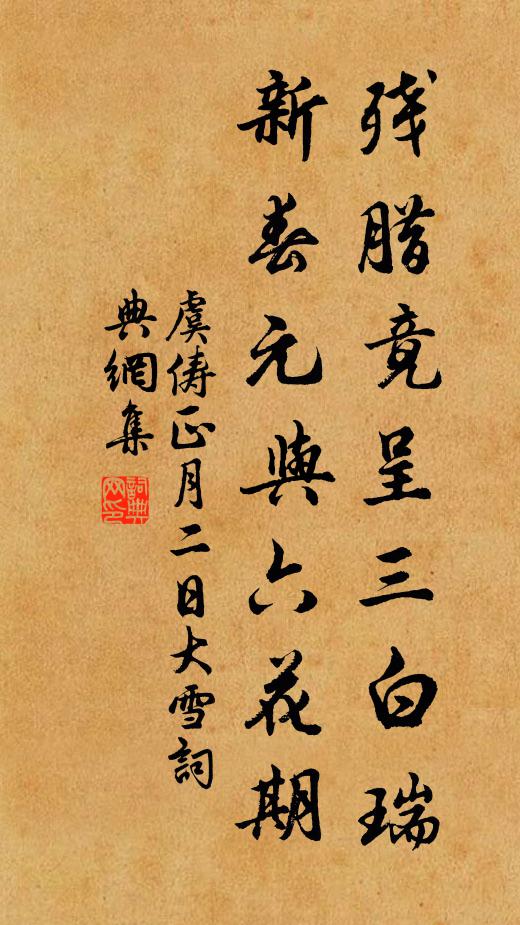 残腊竟呈三白瑞
新春元與六花期
虞儔正月二日大雪詞
典網集
詞典
网印